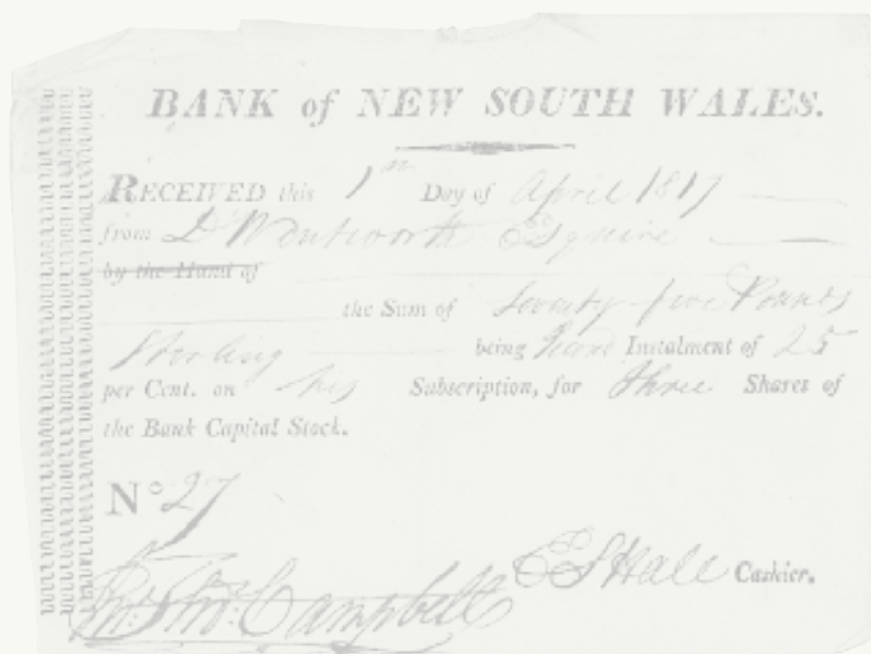 BANK of NEW SOUTH WALES.
RECEIVED this 1st Day of April 1817
from D Wentworth Esquire
by the Hand of
the Sum of Seventy five Pounds
Sterling being Instalment of 25
per Cent. on his Subscription, for three Shares of
the Bank Capital Stock.
No 27
Jno. Thos. Campbell ES Hall Cashier.